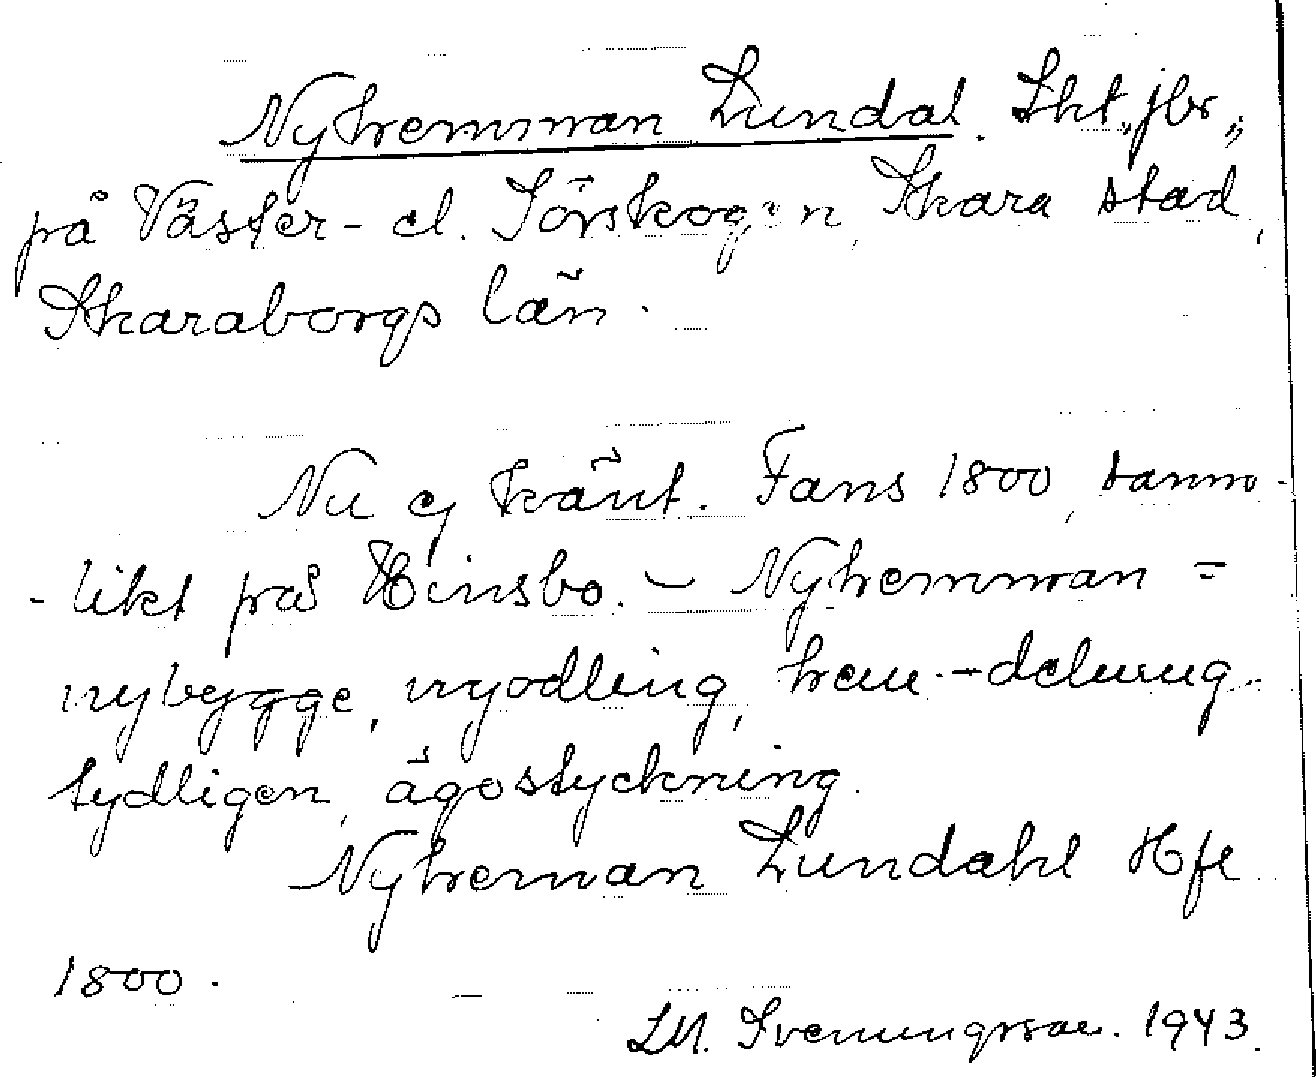 Nyhemman Lundal. Lht. jbr,
på Väster- el. Sörskogen, Skara stad,
Skaraborgs län.
Nu ej känt. Fans 1800, sanno-
-likt på Hinsbo. – Nyhemman =
nybygge, nyodling, hem.-delning
tydligen, ägostyckning.
Nyheman Lundahl Hfl
1800.
LM. Svenungsson. 1943.